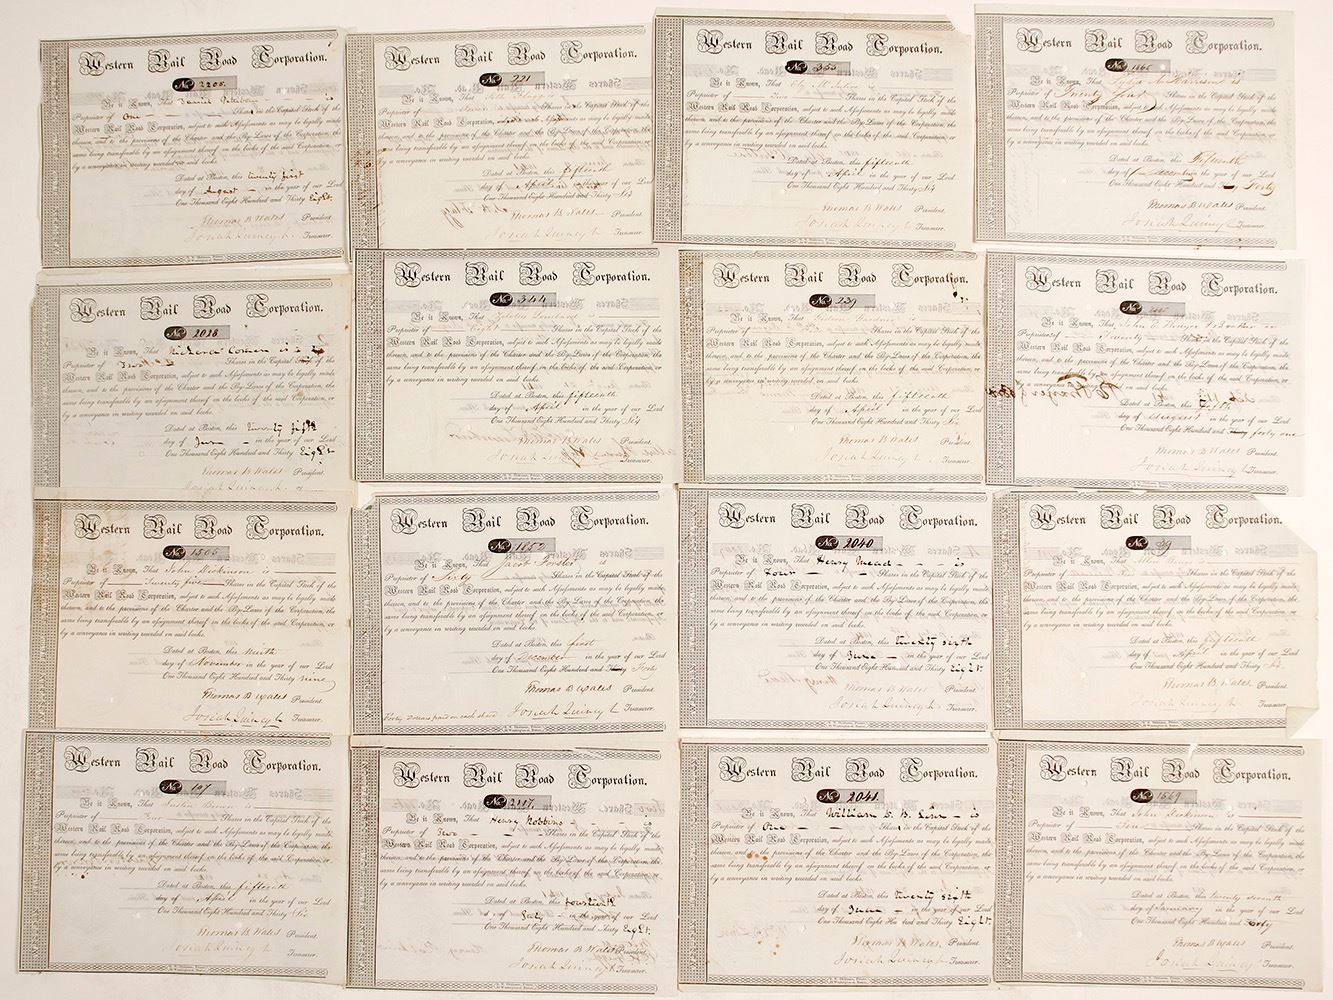 Western Rail Road Corporation.
No. 2205
Be it Known, That Daniel is
Proprietor of One Share in the Capital Stock of the
Western Rail Road Corporation, subject to such Assessments as may be legally made
thereon, and to the provisions of the Charter and the By-Laws of the Corporation, the
same being transferable by an assignment thereof on the books of the said Corporation, or
by a conveyance in writing recorded on said books.
Dated at Boston, this twenty first
day of August in the year of our Lord
One Thousand Eight Hundred and Thirty Eight.
Thomas B. Wales President.
Josiah Quincy Jr. Treasurer.
Western Rail Road Corporation.
No. 221
Be it Known, That
Proprietor of Shares in the Capital Stock of the
Western Rail Road Corporation, subject to such Assessments as may be legally made
thereon, and to the provisions of the Charter and the By-Laws of the Corporation, the
same being transferable by an assignment thereof on the books of the said Corporation, or
by a conveyance in writing recorded on said books.
Dated at Boston, this fifteenth
day of April in the year of our Lord
One Thousand Eight Hundred and Thirty Six
Thomas B. Wales President.
Josiah Quincy Jr. Treasurer.
Western Rail Road Corporation.
No. 355
Be it Known, That
Proprietor of Shares in the Capital Stock of the
Western Rail Road Corporation, subject to such Assessments as may be legally made
thereon, and to the provisions of the Charter and the By-Laws of the Corporation, the
same being transferable by an assignment thereof on the books of the said Corporation, or
by a conveyance in writing recorded on said books.
Dated at Boston, this fifteenth
day of April in the year of our Lord
One Thousand Eight Hundred and Thirty Six
Thomas B. Wales President.
Josiah Quincy Jr. Treasurer.
Western Rail Road Corporation.
No. 1865
Be it Known, That
Proprietor of Twenty Four Shares in the Capital Stock of the
Western Rail Road Corporation, subject to such Assessments as may be legally made
thereon, and to the provisions of the Charter and the By-Laws of the Corporation, the
same being transferable by an assignment thereof on the books of the said Corporation, or
by a conveyance in writing recorded on said books.
Dated at Boston, this Fifteenth
day of December in the year of our Lord
One Thousand Eight Hundred and Forty
Thomas B. Wales President.
Josiah Quincy Jr. Treasurer.
Western Rail Road Corporation.
No. 2028
Be it Known, That Richard is
Proprietor of Shares in the Capital Stock of the
Western Rail Road Corporation, subject to such Assessments as may be legally made
thereon, and to the provisions of the Charter and the By-Laws of the Corporation, the
same being transferable by an assignment thereof on the books of the said Corporation, or
by a conveyance in writing recorded on said books.
Dated at Boston, this twenty fifth
day of June in the year of our Lord
One Thousand Eight Hundred and Thirty Eight.
Thomas B. Wales President.
Josiah Quincy Jr.
Western Rail Road Corporation.
No. 344
Be it Known, That
Proprietor of Eight Shares in the Capital Stock of the
Western Rail Road Corporation, subject to such Assessments as may be legally made
thereon, and to the provisions of the Charter and the By-Laws of the Corporation, the
same being transferable by an assignment thereof on the books of the said Corporation, or
by a conveyance in writing recorded on said books.
Dated at Boston, this fifteenth
day of April in the year of our Lord
One Thousand Eight Hundred and Thirty Six
Thomas B. Wales President.
Josiah Quincy Treasurer.
Western Rail Road Corporation.
No. 239
Be it Known, That
Proprietor of Shares in the Capital Stock of the
Western Rail Road Corporation, subject to such Assessments as may be legally made
thereon, and to the provisions of the Charter and the By-Laws of the Corporation, the
same being transferable by an assignment thereof on the books of the said Corporation, or
by a conveyance in writing recorded on said books.
Dated at Boston, this fifteenth
day of April in the year of our Lord
One Thousand Eight Hundred and Thirty Six
Thomas B. Wales President.
Josiah Quincy Jr. Treasurer.
Western Rail Road Corporation.
No.
Be it Known, That John E. Thayer & Brother is
Proprietor of Seventy Shares in the Capital Stock of the
Western Rail Road Corporation, subject to such Assessments as may be legally made
thereon, and to the provisions of the Charter and the By-Laws of the Corporation, the
same being transferable by an assignment thereof on the books of the said Corporation, or
by a conveyance in writing recorded on said books.
Dated at Boston, this
day of in the year of our Lord
One Thousand Eight Hundred and Thirty forty one
Thomas B. Wales President.
Josiah Quincy Jr. Treasurer.
Western Rail Road Corporation.
No. 1506
Be it Known, That John Dickinson is
Proprietor of Twenty five Shares in the Capital Stock of the
Western Rail Road Corporation, subject to such Assessments as may be legally made
thereon, and to the provisions of the Charter and the By-Laws of the Corporation, the
same being transferable by an assignment thereof on the books of the said Corporation, or
by a conveyance in writing recorded on said books.
Dated at Boston, this Ninth
day of November in the year of our Lord
One Thousand Eight Hundred and Thirty nine
Thomas B. Wales President.
Josiah Quincy Jr. Treasurer.
Western Rail Road Corporation.
No. 1852
Be it Known, That Jacob Forster is
Proprietor of Sixty Shares in the Capital Stock of the
Western Rail Road Corporation, subject to such Assessments as may be legally made
thereon, and to the provisions of the Charter and the By-Laws of the Corporation, the
same being transferable by an assignment thereof on the books of the said Corporation, or
by a conveyance in writing recorded on said books.
Dated at Boston, this first
day of December in the year of our Lord
One Thousand Eight Hundred and Thirty Forty
Thomas B. Wales President.
Forty Dollars paid on each share Josiah Quincy Jr. Treasurer.
Western Rail Road Corporation.
No. 2040
Be it Known, That Henry Mead is
Proprietor of Four Shares in the Capital Stock of the
Western Rail Road Corporation, subject to such Assessments as may be legally made
thereon, and to the provisions of the Charter and the By-Laws of the Corporation, the
same being transferable by an assignment thereof on the books of the said Corporation, or
by a conveyance in writing recorded on said books.
Dated at Boston, this twenty sixth
day of June in the year of our Lord
One Thousand Eight Hundred and Thirty Eight.
Thomas B. Wales President.
Josiah Quincy Jr. Treasurer.
Western Rail Road Corporation.
No. 39
Be it Known, That
Proprietor of Shares in the Capital Stock of the
Western Rail Road Corporation, subject to such Assessments as may be legally made
thereon, and to the provisions of the Charter and the By-Laws of the Corporation, the
same being transferable by an assignment thereof on the books of the said Corporation, or
by a conveyance in writing recorded on said books.
Dated at Boston, this fifteenth
day of April in the year of our Lord
One Thousand Eight Hundred and Thirty Six
Thomas B. Wales President.
Josiah Quincy Jr. Treasurer.
Western Rail Road Corporation.
No. 107
Be it Known, That is
Proprietor of Shares in the Capital Stock of the
Western Rail Road Corporation, subject to such Assessments as may be legally made
thereon, and to the provisions of the Charter and the By-Laws of the Corporation, the
same being transferable by an assignment thereof on the books of the said Corporation, or
by a conveyance in writing recorded on said books.
Dated at Boston, this fifteenth
day of April in the year of our Lord
One Thousand Eight Hundred and Thirty Six
Thomas B. Wales President.
Josiah Quincy Jr. Treasurer.
Western Rail Road Corporation.
No. 2117
Be it Known, That Henry Robbins is
Proprietor of Two Shares in the Capital Stock of the
Western Rail Road Corporation, subject to such Assessments as may be legally made
thereon, and to the provisions of the Charter and the By-Laws of the Corporation, the
same being transferable by an assignment thereof on the books of the said Corporation, or
by a conveyance in writing recorded on said books.
Dated at Boston, this fourteenth
day of July in the year of our Lord
One Thousand Eight Hundred and Thirty Eight.
Thomas B. Wales President.
Josiah Quincy Jr. Treasurer.
Western Rail Road Corporation.
No. 2041
Be it Known, That William S. B. is
Proprietor of One Share in the Capital Stock of the
Western Rail Road Corporation, subject to such Assessments as may be legally made
thereon, and to the provisions of the Charter and the By-Laws of the Corporation, the
same being transferable by an assignment thereof on the books of the said Corporation, or
by a conveyance in writing recorded on said books.
Dated at Boston, this twenty sixth
day of June in the year of our Lord
One Thousand Eight Hundred and Thirty Eight.
Thomas B. Wales President.
Josiah Quincy Jr. Treasurer.
Western Rail Road Corporation.
No. 1569
Be it Known, That John Dickinson is
Proprietor of Ten Shares in the Capital Stock of the
Western Rail Road Corporation, subject to such Assessments as may be legally made
thereon, and to the provisions of the Charter and the By-Laws of the Corporation, the
same being transferable by an assignment thereof on the books of the said Corporation, or
by a conveyance in writing recorded on said books.
Dated at Boston, this twenty seventh
day of January in the year of our Lord
One Thousand Eight Hundred and Forty
Thomas B. Wales President.
Josiah Quincy Jr. Treasurer.